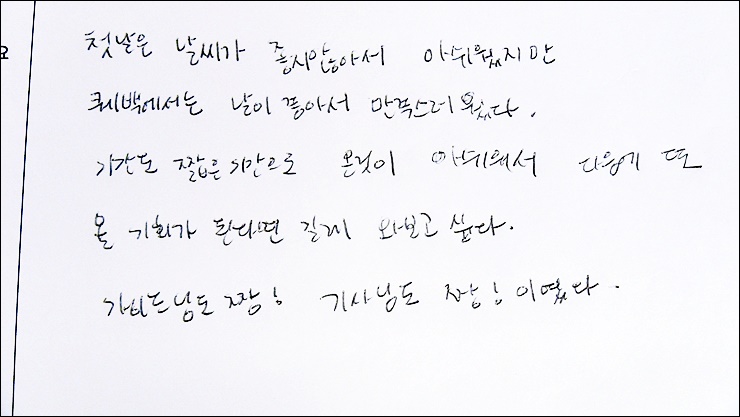 요
첫날은 날씨가 좋지않아서 아쉬웠지만
퀘백에서는 날이 좋아서 만족스러웠다.
기간도 짧은시간으로 온것이 아쉬워서 다음에 또
올 기회가 된다면 길게 와보고 싶다.
가이드님도 짱! 기사님도 짱! 이였다.